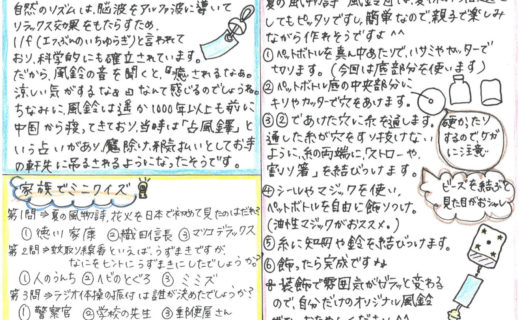 自然のリズムは、脳波をアルファ波に導いて
リラックス効果をもたらすため、
1/f(エフぶんのいちゆらぎ)と言われて
おり、科学的にも確立されています。
だから、風鈴の音を聞くと、『癒されるなぁ。
涼しい気がするなぁ』なんて感じるのでしょうね。
ちなみに、風鈴は遥か1000年以上も前に
中国から渡ってきており、当時は「占風鐸」と
いう占いがあり、魔除け、邪気払いとしてお寺
の軒先に吊るされるようになったそうです。
家族でミニクイズ
第1問⇒夏の風物詩、花火を日本で初めて見たのはだれ?
①徳川家康 ②織田信長 ③マツコデラックス
第2問⇒蚊取り線香といえば、うずまきですが、
なにをヒントにうずまきにしたでしょうか?
①人のうんち ②ヘビのとぐろ ③ミミズ
第3問⇒ラジオ体操の振付は誰が決めたでしょうか?
①警察官 ②学校の先生 ③郵便屋さん
してもピッタリですし、簡単なので親子で楽しみ
ながら作れそうですよ^^
①ペットボトルを真ん中あたりで、ハサミやカッターで
切ります。(今回は底部分を使います)
②ペットボトル底の中央部分に
キリやカッターで穴をあけます。
③②であけた穴に糸を通します。
通した糸が穴をすり抜けない
ように、糸の両端に、「ストローや、
割り箸」を結びつけます。
硬かったり
するのでケガ
に注意
④シールやマジックを使い、
ペットボトルを自由に飾りつけ。
(油性マジックがおススメ。)
ビーズを結ぶと
見た目がおシャレ
⑤糸に短冊や鈴を結びつけます。
⑥飾ったら完成ですね
※装飾で雰囲気がガラッと変わる
ので、自分だけのオリジナル風鈴